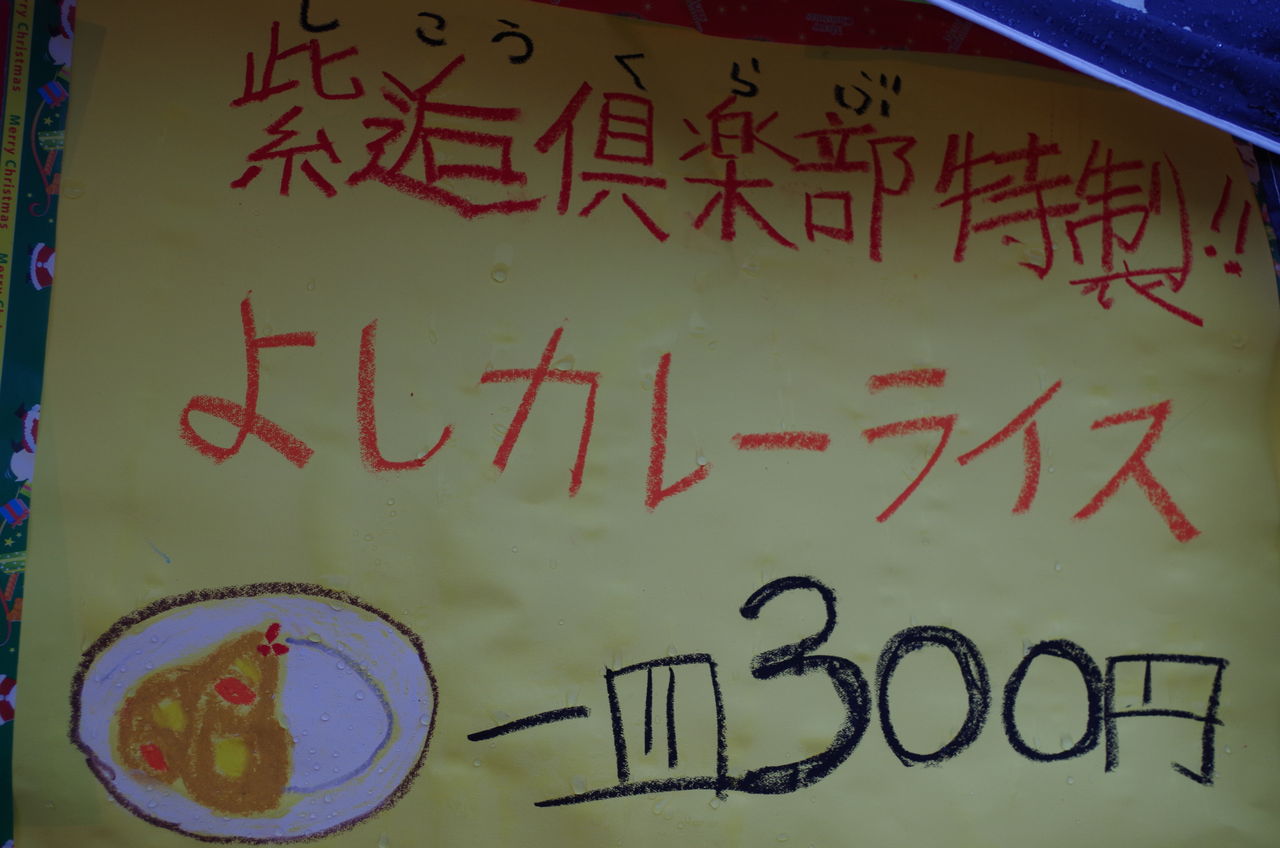 しこうくらぶ
紫逅倶楽部特製!!
よしカレーライス
一皿300円
Merry Christmas
Merry Christmas